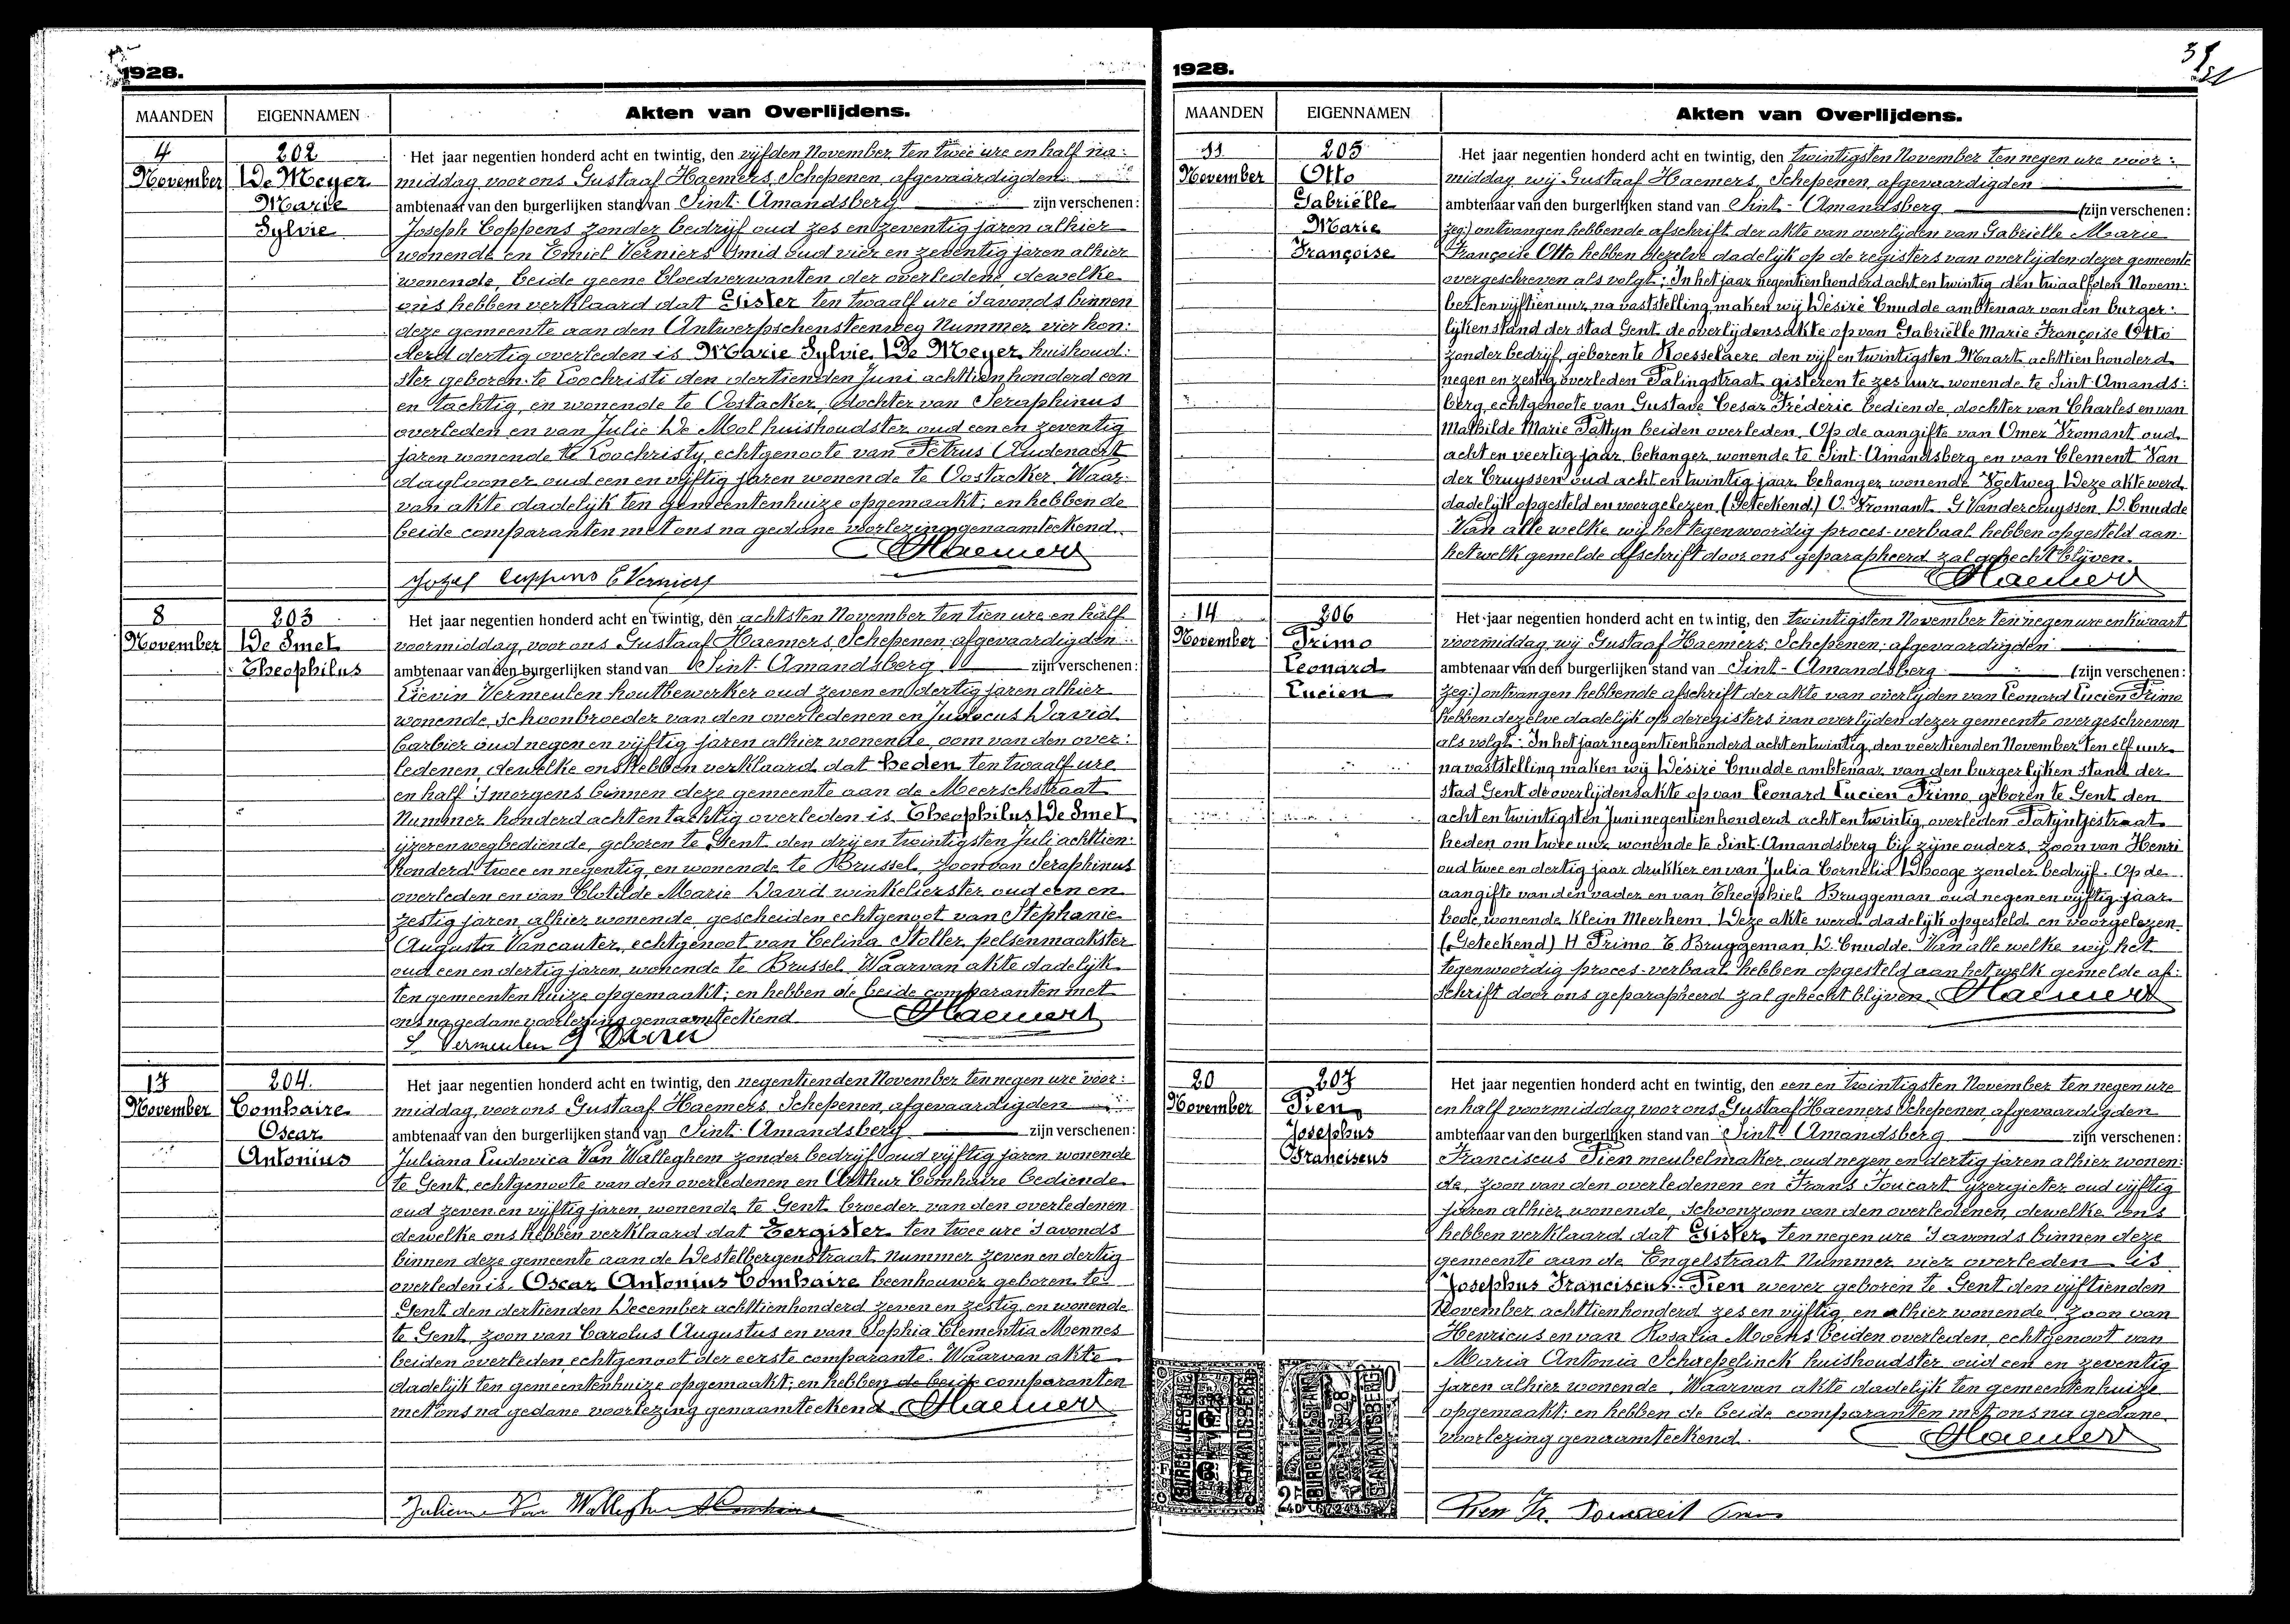 1928.
MAANDEN
EIGENNAMEN
Akten van Overlijdens.
4
November
202
De Meyer
Marie
Sylvie
Het jaar negentien honderd acht en twintig, den vijfden November ten twee ure en half na:
middag voor ons Gustaaf Haemers, Schepenen, afgevaardigden
ambtenaar van den burgerlijken stand van Sint-Amandsberg zijn verschenen:
Joseph Coppens zonder bedrijf oud zes en zeventig jaren alhier
wonende en Emiel Verniers smid oud vier en zeventig jaren alhier
wonende, beide geene bloedverwanten der overledene, dewelke
ons hebben verklaard dat Gister ten twaalf ure 's avonds binnen
deze gemeente aan den Antwerpschensteenweg Nummer vier hon:
derd dertig overleden is Marie Sylvie De Meyer huishoud:
ster geboren te Loochristi den dertienden Juni achttien honderd een
en tachtig, en wonende te Oostacker, dochter van Seraphinus
overleden en van Julie De Mol huishoudster oud een en zeventig
jaren wonende te Loochristy, echtgenoote van Petrus Audenaert
daglooner oud een en vijftig jaren wonende te Oostacker. Waar:
van akte dadelijk ten gemeentenhuize opgemaakt; en hebben de
beide comparanten met ons na gedane voorlezing genaamteekend.
Haemers
Jozef Coppens E Verniers
8
November
203
De Smet
Theophilus
Het jaar negentien honderd acht en twintig, den achtsten November ten tien ure en half
voormiddag, voor ons Gustaaf Haemers, Schepenen, afgevaardigden
ambtenaar van den burgerlijken stand van Sint-Amandsberg zijn verschenen:
Lievin Vermeulen houtbewerker oud zeven en dertig jaren alhier
wonende, schoonbroeder van den overledenen en Judocus David
barbier oud negen en vijftig jaren alhier wonende, oom van den over:
ledenen, dewelke ons hebben verklaard dat heden ten twaalf ure
en half 's morgens binnen deze gemeente aan de Meerschstraat
Nummer honderd acht en tachtig overleden is Theophilus De Smet
ijzerenwegbediende, geboren te Gent den drij en twintigsten Juli achttien:
honderd twee en negentig, en wonende te Brussel, zoon van Seraphinus
overleden en van Clotilde Marie David winkelierster oud een en
zestig jaren, alhier wonende, gescheiden echtgenoot van Stephanie
Augusta Vancauter, echtgenoot van Celina Stoller, pelsenmaakster
oud een en dertig jaren, wonende te Brussel. Waarvan akte dadelijk
ten gemeentenhuize opgemaakt; en hebben de beide comparanten met
ons na gedane voorlezing genaamteekend.
Haemers
L Vermeulen J David
17
November
204.
Comhaire
Oscar
Antonius
Het jaar negentien honderd acht en twintig, den negentienden November ten negen ure voor:
middag, voor ons Gustaaf Haemers, Schepenen, afgevaardigden
ambtenaar van den burgerlijken stand van Sint-Amandsberg zijn verschenen:
Juliana Ludovica Van Walleghem zonder bedrijf oud vijftig jaren wonende
te Gent, echtgenoote van den overledenen en Arthur Comhaire bediende
oud zeven en vijftig jaren, wonende te Gent broeder van den overledenen
dewelke ons hebben verklaard dat Eergister ten twee ure 's avonds
binnen deze gemeente aan de Destelbergenstraat nummer zeven en dertig
overleden is Oscar Antonius Comhaire beenhouwer geboren te
Gent den dertienden December achttienhonderd zeven en zestig, en wonende
te Gent, zoon van Carolus Augustus en van Sophia Clementia Mennes
beiden overleden, echtgenoot der eerste comparante. Waarvan akte
dadelijk ten gemeentenhuize opgemaakt; en hebben de beide comparanten
met ons na gedane voorlezing genaamteekend. Haemers
Julienne Van Walleghem A Comhaire
1928.
MAANDEN
EIGENNAMEN
Akten van Overlijdens.
11
November
205
Otto
Gabriëlle
Marie
Françoise
Het jaar negentien honderd acht en twintig, den twintigsten November ten negen ure voor:
middag, wij Gustaaf Haemers, Schepenen, afgevaardigden
ambtenaar van den burgerlijken stand van Sint-Amandsberg (zijn verschenen:
zeg:) ontvangen hebbende afschrift der akte van overlijden van Gabriëlle Marie
Françoise Otto hebben dezelve dadelijk op de registers van overlijden dezer gemeente
overgeschreven als volgt: In het jaar negentienhonderd acht en twintig den twaalfden Novem:
ber ten vijftien uur, na vaststelling, maken wij Désiré Cnudde ambtenaar van den burger:
lijken stand der stad Gent de overlijdensakte op van Gabriëlle Marie Françoise Otto
zonder bedrijf, geboren te Roesselaere den vijf en twintigsten Maart achttien honderd
negen en zestig overleden Palingstraat gisteren te zes uur wonende te Sint-Amands:
berg, echtgenoote van Gustave Cesar Fréderic bediende, dochter van Charles en van
Mathilde Marie Pattyn beiden overleden. Op de aangifte van Omer Vromant oud
acht en veertig jaar, behanger wonende te Sint-Amandsberg en van Clement Van
der Cruyssen oud acht en twintig jaar behanger wonende Voetweg. Deze akte werd
dadelijk opgesteld en voorgelezen. (Geteekend) O. Vromant. G Vandercruyssen D. Cnudde
Van alle welke wij het tegenwoordig proces-verbaal hebben opgesteld aan:
hetwelk gemelde afschrift door ons geparapheerd zal gehecht blijven.
Haemers
14
November
206
Primo
Leonard
Lucien
Het jaar negentien honderd acht en twintig, den twintigsten November ten negen ure en kwaart
voormiddag, wij Gustaaf Haemers, Schepenen, afgevaardigden
ambtenaar van den burgerlijken stand van Sint-Amandsberg (zijn verschenen:
zeg:) ontvangen hebbende afschrift der akte van overlijden van Leonard Lucien Primo
hebben dezelve dadelijk op de registers van overlijden dezer gemeente overgeschreven
als volgt: In het jaar negentienhonderd acht en twintig, den veertienden November ten elf uur
na vaststelling maken wij Désiré Cnudde ambtenaar van den burgerlijken stand der
stad Gent de overlijdensakte op van Leonard Lucien Primo, geboren te Gent den
acht en twintigsten Juni negentienhonderd acht en twintig, overleden Patijntjestraat
heden om twee uur wonende te Sint-Amandsberg bij zijne ouders, zoon van Henri
oud twee en dertig jaar drukker en van Julia Cornelia Dhooge zonder bedrijf. Op de
aangifte van den vader en van Theophiel Bruggeman oud negen en vijftig jaar
bode, wonende Klein Meerhem. Deze akte werd dadelijk opgesteld en voorgelezen.
(Geteekend) H Primo T. Bruggeman, D. Cnudde. Van alle welke wij het
tegenwoordig proces-verbaal hebben opgesteld aan het welk gemelde af:
schrift door ons geparapheerd zal gehecht blijven. Haemers
20
November
207
Pien
Josephus
Franciscus
Het jaar negentien honderd acht en twintig, den een en twintigsten November ten negen ure
en half voormiddag, voor ons Gustaaf Haemers Schepenen, afgevaardigden
ambtenaar van den burgerlijken stand van Sint-Amandsberg zijn verschenen:
Franciscus Pien meubelmaker, oud negen en dertig jaren alhier wonen:
de, zoon van den overledenen en Frans Foucart ijzergieter oud vijftig
jaren alhier wonende, schoonzoon van den overledenen, dewelke ons
hebben verklaard dat Gister ten negen ure 's avonds binnen deze
gemeente aan de Engelstraat Nummer vier overleden is
Josephus Franciscus Pien wever geboren te Gent den vijftienden
November achttienhonderd zes en vijftig en alhier wonende zoon van
Henricus en van Rosalia Moens beiden overleden, echtgenoot van
Maria Antonia Schaepelinck huishoudster oud een en zeventig
jaren alhier wonende. Waarvan akte dadelijk ten gemeentenhuize
opgemaakt: en hebben de beide comparanten met ons na gedane
voorlezing genaamteekend.
Haemers
Pien Fr.